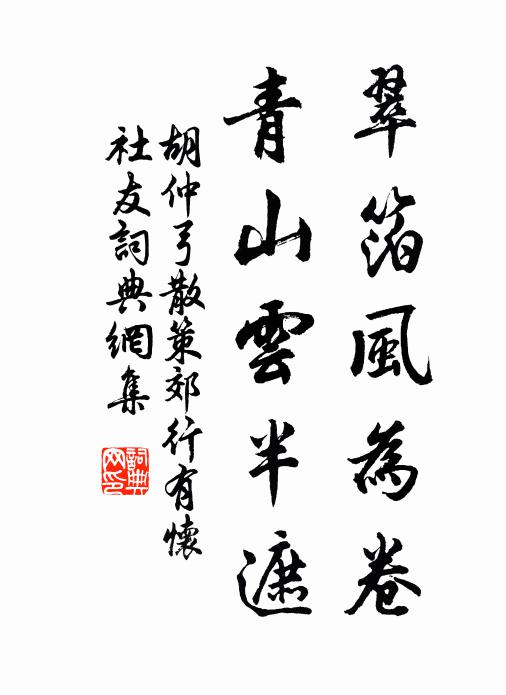 翠箔風為卷
青山雲半遮
胡仲弓散策郊行有懷
社友詞典網集
詞典网印